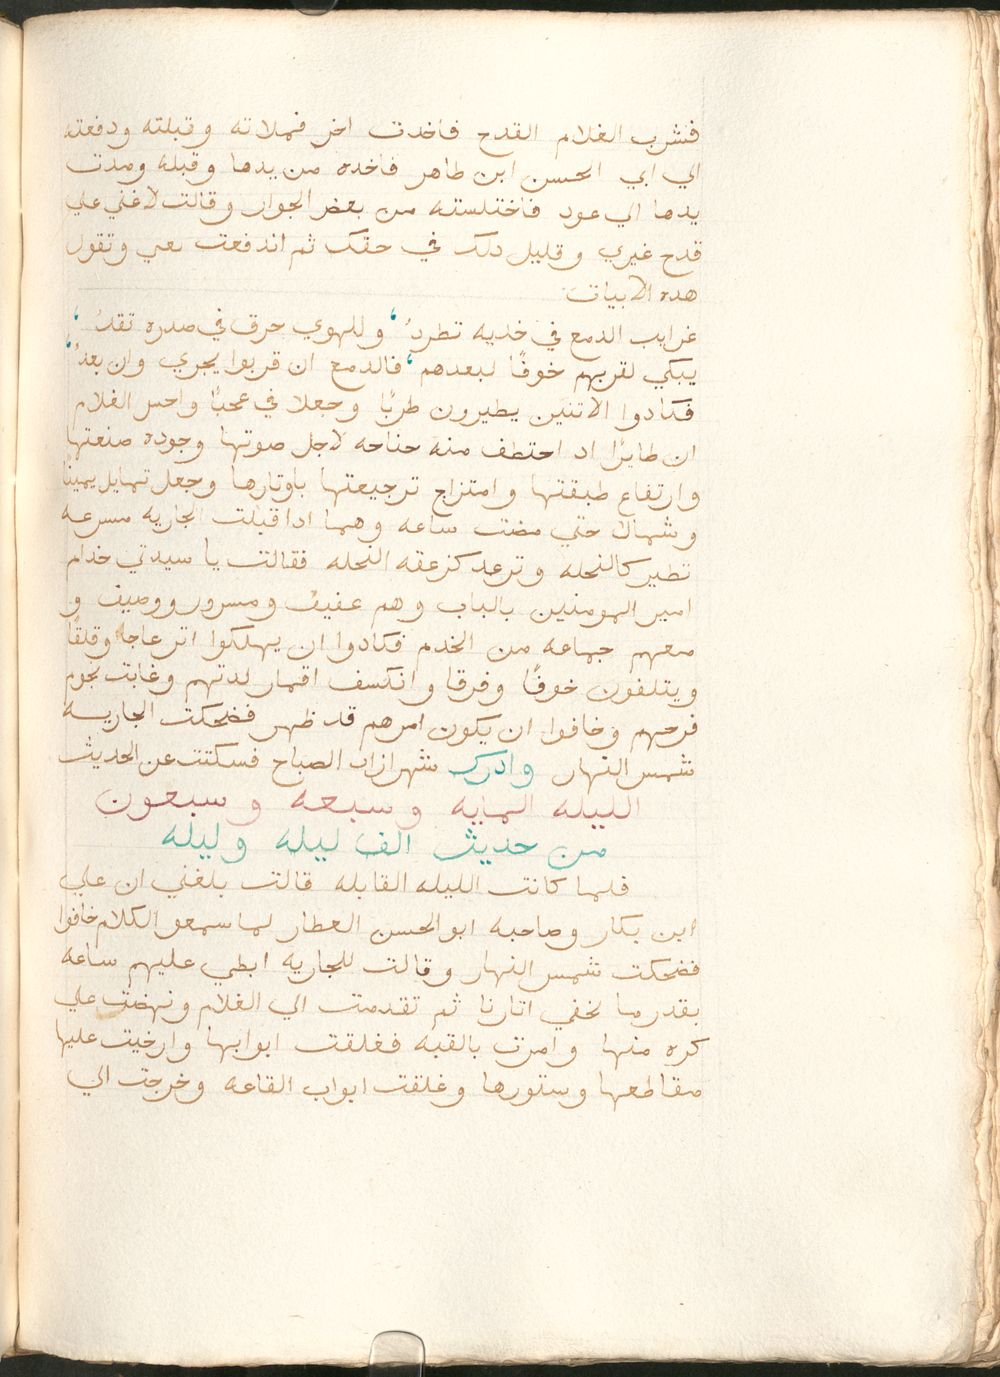 فشرب الغلام القدح فاخدت اخر فملاته وقبلته ودفعته
الي ابي الحسن ابن طاهر فاخده من يدها وقبله ومدت
يدها الي عود فاختلسته من بعض الجوار وقالت لاغني علي
قدح غيري وقليل دلك في حقك ثم اندفعت تغني وتقول
هده الابيات
غرايب الدمع في خديه تطردُ ، وللهوي حرق في صدره تقدُ ،
يبكي لقربهم خوفًا لبعدهم ، فالدمع ان قربوا يجري وان بعدُ ،
فكادوا الاتنين يطيرون طربًا وجعلا في عجبًا واحس الغلام
ان طايرًا اد اختطف منه جناحه لاجل صوتها وجوده صنعتها
وارتفاع طبقتها وامتزاج ترجيعتها باوتارها وجعل تمايل يمينًا
وشمال حتي مضت ساعه وهما ادا قبلت الجاريه مسرعه
تطير كالنحله وترعد كزعقه النخله فقالت يا سيدتي خدام
امير المومنين بالباب وهم عفيف ومسرور ووصيف و
معهم جماعه من الخدم فكادوا ان يهلكوا انزعاجا وقلقًا
ويتلفون خوفًا وفرقا وانكسف اقمار لدتهم وغابت نجوم
فرحهم وخافوا ان يكون امرهم قد ظهر فضحكت الجاريه
شمس النهار وادرك شهرازاد الصباح فسكتت عن الحديث
الليله المايه وسبعه وسبعون
من حديث الف ليله وليله
فلما كانت الليله القابله قالت بلغني ان علي
ابن بكار وصاحبه ابو الحسن العطار لما سمعو الكلام خافوا
فضحكت شمس النهار وقالت للجاريه ابطي عليهم ساعه
بقدر ما نخفي اتارنا ثم تقدمت الي الغلام ونهضت علي
كره منها وامرت بالقبه فغلقت ابوابها وارخيت عليها
مقاطعها وستورها وغلقت ابواب القاعه وخرجت الي